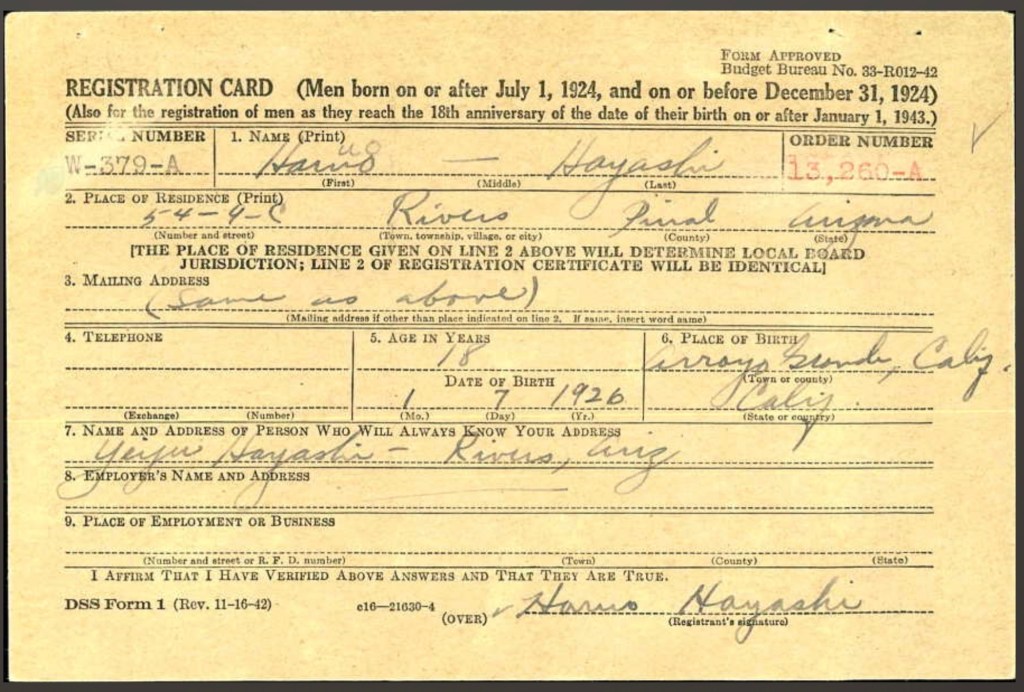 FORM APPROVED
Budget Bureau No. 33-R012-42
REGISTRATION CARD (Men born on or after July 1, 1924, and on or before December 31, 1924)
(Also for the registration of men as they reach the 18th anniversary of the date of their birth on or after January 1, 1943.)
SERIAL NUMBER 1. NAME (Print) ORDER NUMBER
W-379-A Haruo — Hayashi 13,260-A
(First) (Middle) (Last)
2. PLACE OF RESIDENCE (Print)
54-9-C Rivers Pinal Arizona
(Number and street) (Town, township, village, or city) (County) (State)
[THE PLACE OF RESIDENCE GIVEN ON LINE 2 ABOVE WILL DETERMINE LOCAL BOARD
JURISDICTION; LINE 2 OF REGISTRATION CERTIFICATE WILL BE IDENTICAL]
3. MAILING ADDRESS
(Same as above)
(Mailing address if other than place indicated on line 2. If same, insert word same)
4. TELEPHONE 5. AGE IN YEARS 6. PLACE OF BIRTH
18 Arroyo Grande, Calif.
DATE OF BIRTH (Town or county)
1 7 1926 Calif.
(Exchange) (Number) (Mo.) (Day) (Yr.) (State or country)
7. NAME AND ADDRESS OF PERSON WHO WILL ALWAYS KNOW YOUR ADDRESS
Hayashi — Rivers, Ariz
8. EMPLOYER'S NAME AND ADDRESS
—
9. PLACE OF EMPLOYMENT OR BUSINESS
(Number and street or R. F. D. number) (Town) (County) (State)
I AFFIRM THAT I HAVE VERIFIED ABOVE ANSWERS AND THAT THEY ARE TRUE.
DSS Form 1 (Rev. 11-16-42) c16—21630-4 (OVER) Haruo Hayashi
(Registrant's signature)